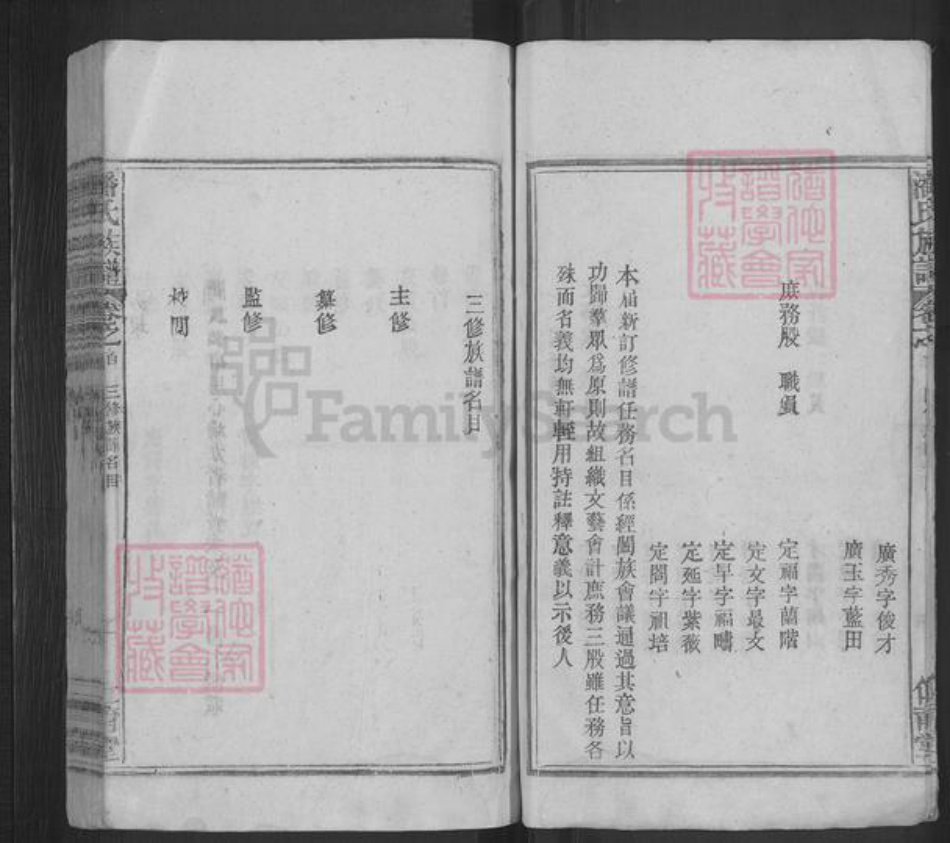 廣秀字俊才
廣玉字藍田
庶務股 職員
定福字蘭階
定文字最文
定早字福疇
定延字紫薇
定閣字祖培
本屆新訂修譜任務名目係經闔族會議通過其意旨以
功歸羣眾爲原則故組織文藝會計庶務三股雖任務各
殊而名義均無軒輊用特註釋意義以示後人
三修族譜名目
主修
纂修
監修
校閲
潘氏族譜
卷之
三修族譜名目
FamilySearch
猶他家
譜學會
收藏
猶他家
譜學會
收藏